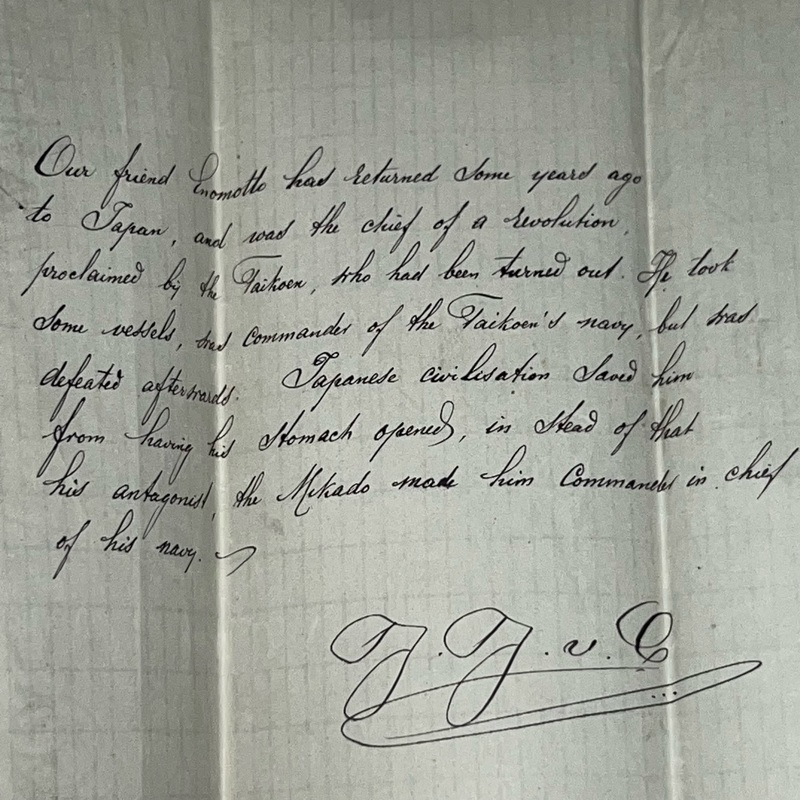 Our friend Enomotto had returned some years ago
to Japan, and was the chief of a revolution,
proclaimed by the Taikoen, who had been turned out. He took
some vessels, was commander of the Taikoen's navy, but was
defeated afterwards. Japanese civilisation saved him
from having his stomach opened, in stead of that
his antagonist, the Mikado made him Commander in chief
of his navy.
J. J. v. C